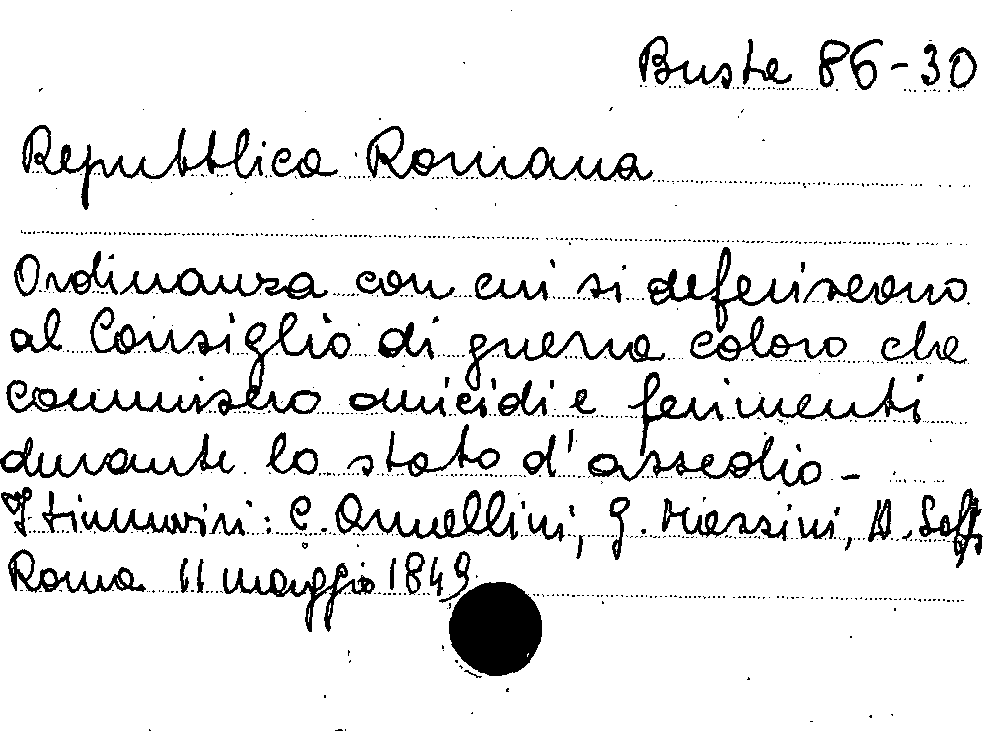 Busta 86-30
Repubblica Romana
Ordinanza con cui si deferiscono
al Consiglio di guerra coloro che
commisero omicidi e ferimenti
durante lo stato d'assedio -
I triumviri: C. Armellini, G. Mazzini, A. Saffi
Roma 11 maggio 1849